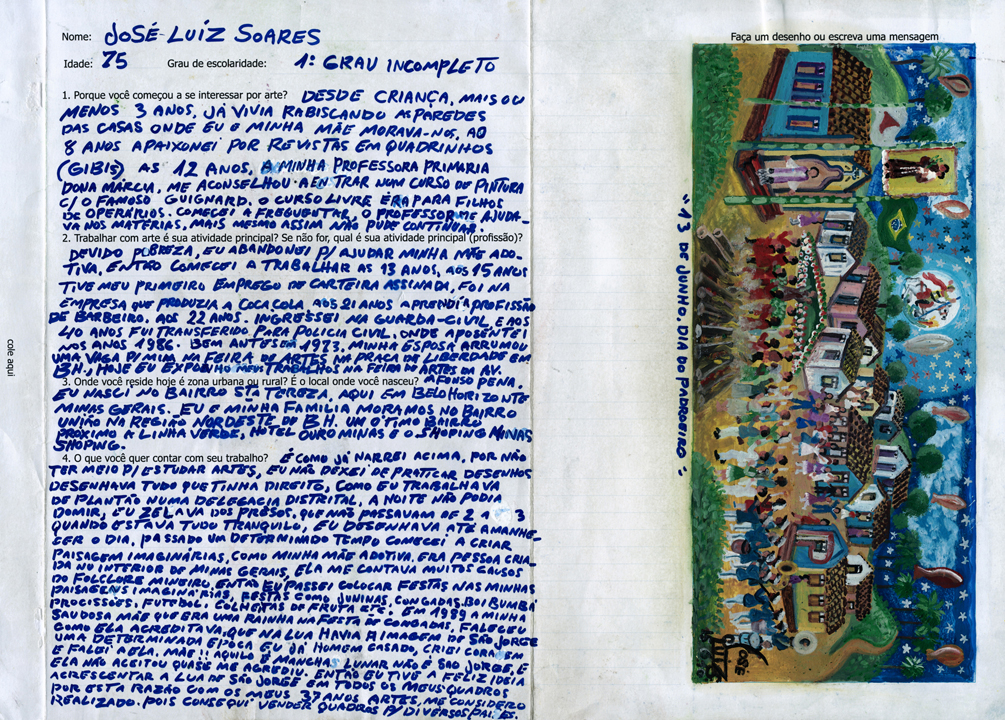 Nome: JOSÉ LUÍZ SOARES
Idade: 75 Grau de escolaridade: 1º GRAU INCOMPLETO
1. Porque você começou a se interessar por arte? DESDE CRIANÇA, MAIS OU
MENOS 3 ANOS, JÁ VIVIA RABISCANDO AS PAREDES
DAS CASAS ONDE EU E MINHA MÃE MORAVA-NOS, AO
8 ANOS APAIXONEI POR REVISTAS EM QUADRINHOS
(GIBIS) AS 12 ANOS, A MINHA PROFESSORA PRIMARIA
DONA MÁRCIA, ME ACONSELHOU A ENTRAR NUM CURSO DE PINTURA
C/ O FAMOSO GUIGNARD. O CURSO LIVRE ERA PARA FILHOS
DE OPERÁRIOS. COMECEI A FREGUENTAR, O PROFESSOR ME AJUDA-
VA NOS MATÉRIAS, MAIS MESMO ASSIM NÃO PUDE CONTINUAR.
2. Trabalhar com arte é sua atividade principal? Se não for, qual é sua atividade principal (profissão)?
DEVIDO POBREZA, EU ABANDONEI P/ AJUDAR MINHA MÃE ADO-
TIVA, ENTÃO COMECEI A TRABALHAR AS 13 ANOS, AOS 15 ANOS
TIVE MEU PRIMEIRO EMPREGO DE CARTEIRA ASSINADA, FOI NA
EMPRESA QUE PRODUZIA A COCA COLA, AOS 21 ANOS APRENDI A PROFISSÃO
DE BARBEIRO. AOS 22 ANOS. INGRESSEI NA GUARDA-CIVIL, E AOS
40 ANOS FUI TRANSFERIDO PARA POLICIA CIVIL, ONDE APOSENTEI
NOS ANOS 1986. BEM ANTES EM 1973. MINHA ESPOSA ARRUMOU
UMA VAGA P/ MIM NA FEIRA DE ARTES NA PRAÇA DE LIBERDADE EM
BH., HOJE EU EXPONHO MEUS TRABALHOS NA FEIRA DE ARTES DA AV.
3. Onde você reside hoje é zona urbana ou rural? É o local onde você nasceu? AFONSO PENA.
EU NASCI NO BAIRRO STA TEREZA, AQUI EM BELO HORIZONTE
MINAS GERAIS. EU E MINHA FAMILIA MORAMOS NO BAIRRO
UNIÃO NA REGIÃO NORDESTE DE B.H. UM OTIMO BAIRRO
PROXIMO A LINHA VERDE, HOTEL OURO MINAS E O SHOPING MINAS
SHOPING.
4. O que você quer contar com seu trabalho? É COMO JÁ NARREI ACIMA, POR NÃO
TER MEIO P/ ESTUDAR ARTES, EU NÃO DEXEI DE PRATICAR DESENHOS
DESENHAVA TUDO QUE TINHA DIREITO, COMO EU TRABALHAVA
DE PLANTÃO NUMA DELEGACIA DISTRITAL, A NOITE NÃO PODIA
DOMIR, EU ZELAVA DOS PRESOS, QUE NÃO PASSAVAM DE 2 A 3
QUANDO ESTAVA TUDO TRANQUILO, EU DESENHAVA ATÉ AMANHE-
CER O DIA, PASSADO UM DETERMINADO TEMPO COMECEI A CRIAR
PAISAGEM IMAGINÁRIAS, COMO MINHA MÃE ADOTIVA, ERA PESSOA CRIA-
DA NO INTERIOR DE MINAS GERAIS, ELA ME CONTAVA MUITOS CAUSOS
DO FOLCLORE MINEIRO, ENTÃO EU PASSEI COLOCAR FESTAS NAS MINHAS
PAISAGENS IMAGINÁRIAS, FESTAS COMO JUNINAS, CONGADAS, BOI BUMBÁ
PROCISSÕES, FUTEBOL, COLHEITAS DE FRUTA ETC. EM 1989 A MINHA
SAUDOSA MÃE QUE ERA UMA RAINHA NA FESTA DE CONGADAS, FALECEU
COMO ELA ACREDITAVA, QUE NA LUA HAVIA A IMAGEM DE SÃO JORGE
UMA DETERMINADA EPOCA EU JÁ HOMEM CASADO, CRIEI CORAGEM
E FALEI A ELA, MÃE!! AQUILO É MANCHAS LUNAR NÃO É SÃO JORGE, E
ELA NÃO ACEITOU QUASE ME AGREDIU. ENTÃO EU TIVE A FELIZ IDEIA
ACRESCENTAR A LUA DE SÃO JORGE EM TODOS OS MEUS QUADROS
POR ESTA RAZÃO COM OS MEUS 37 ANOS ARTES, ME CONSIDERO
REALIZADO. POIS CONSEQUI VENDER QUADROS P/ DIVERSOS PAÍSES.
cole aqui
Faça um desenho ou escreva uma mensagem
"13 DE JUNHO, DIA DO PADROEIRO"
JOSÉ
LUIZ